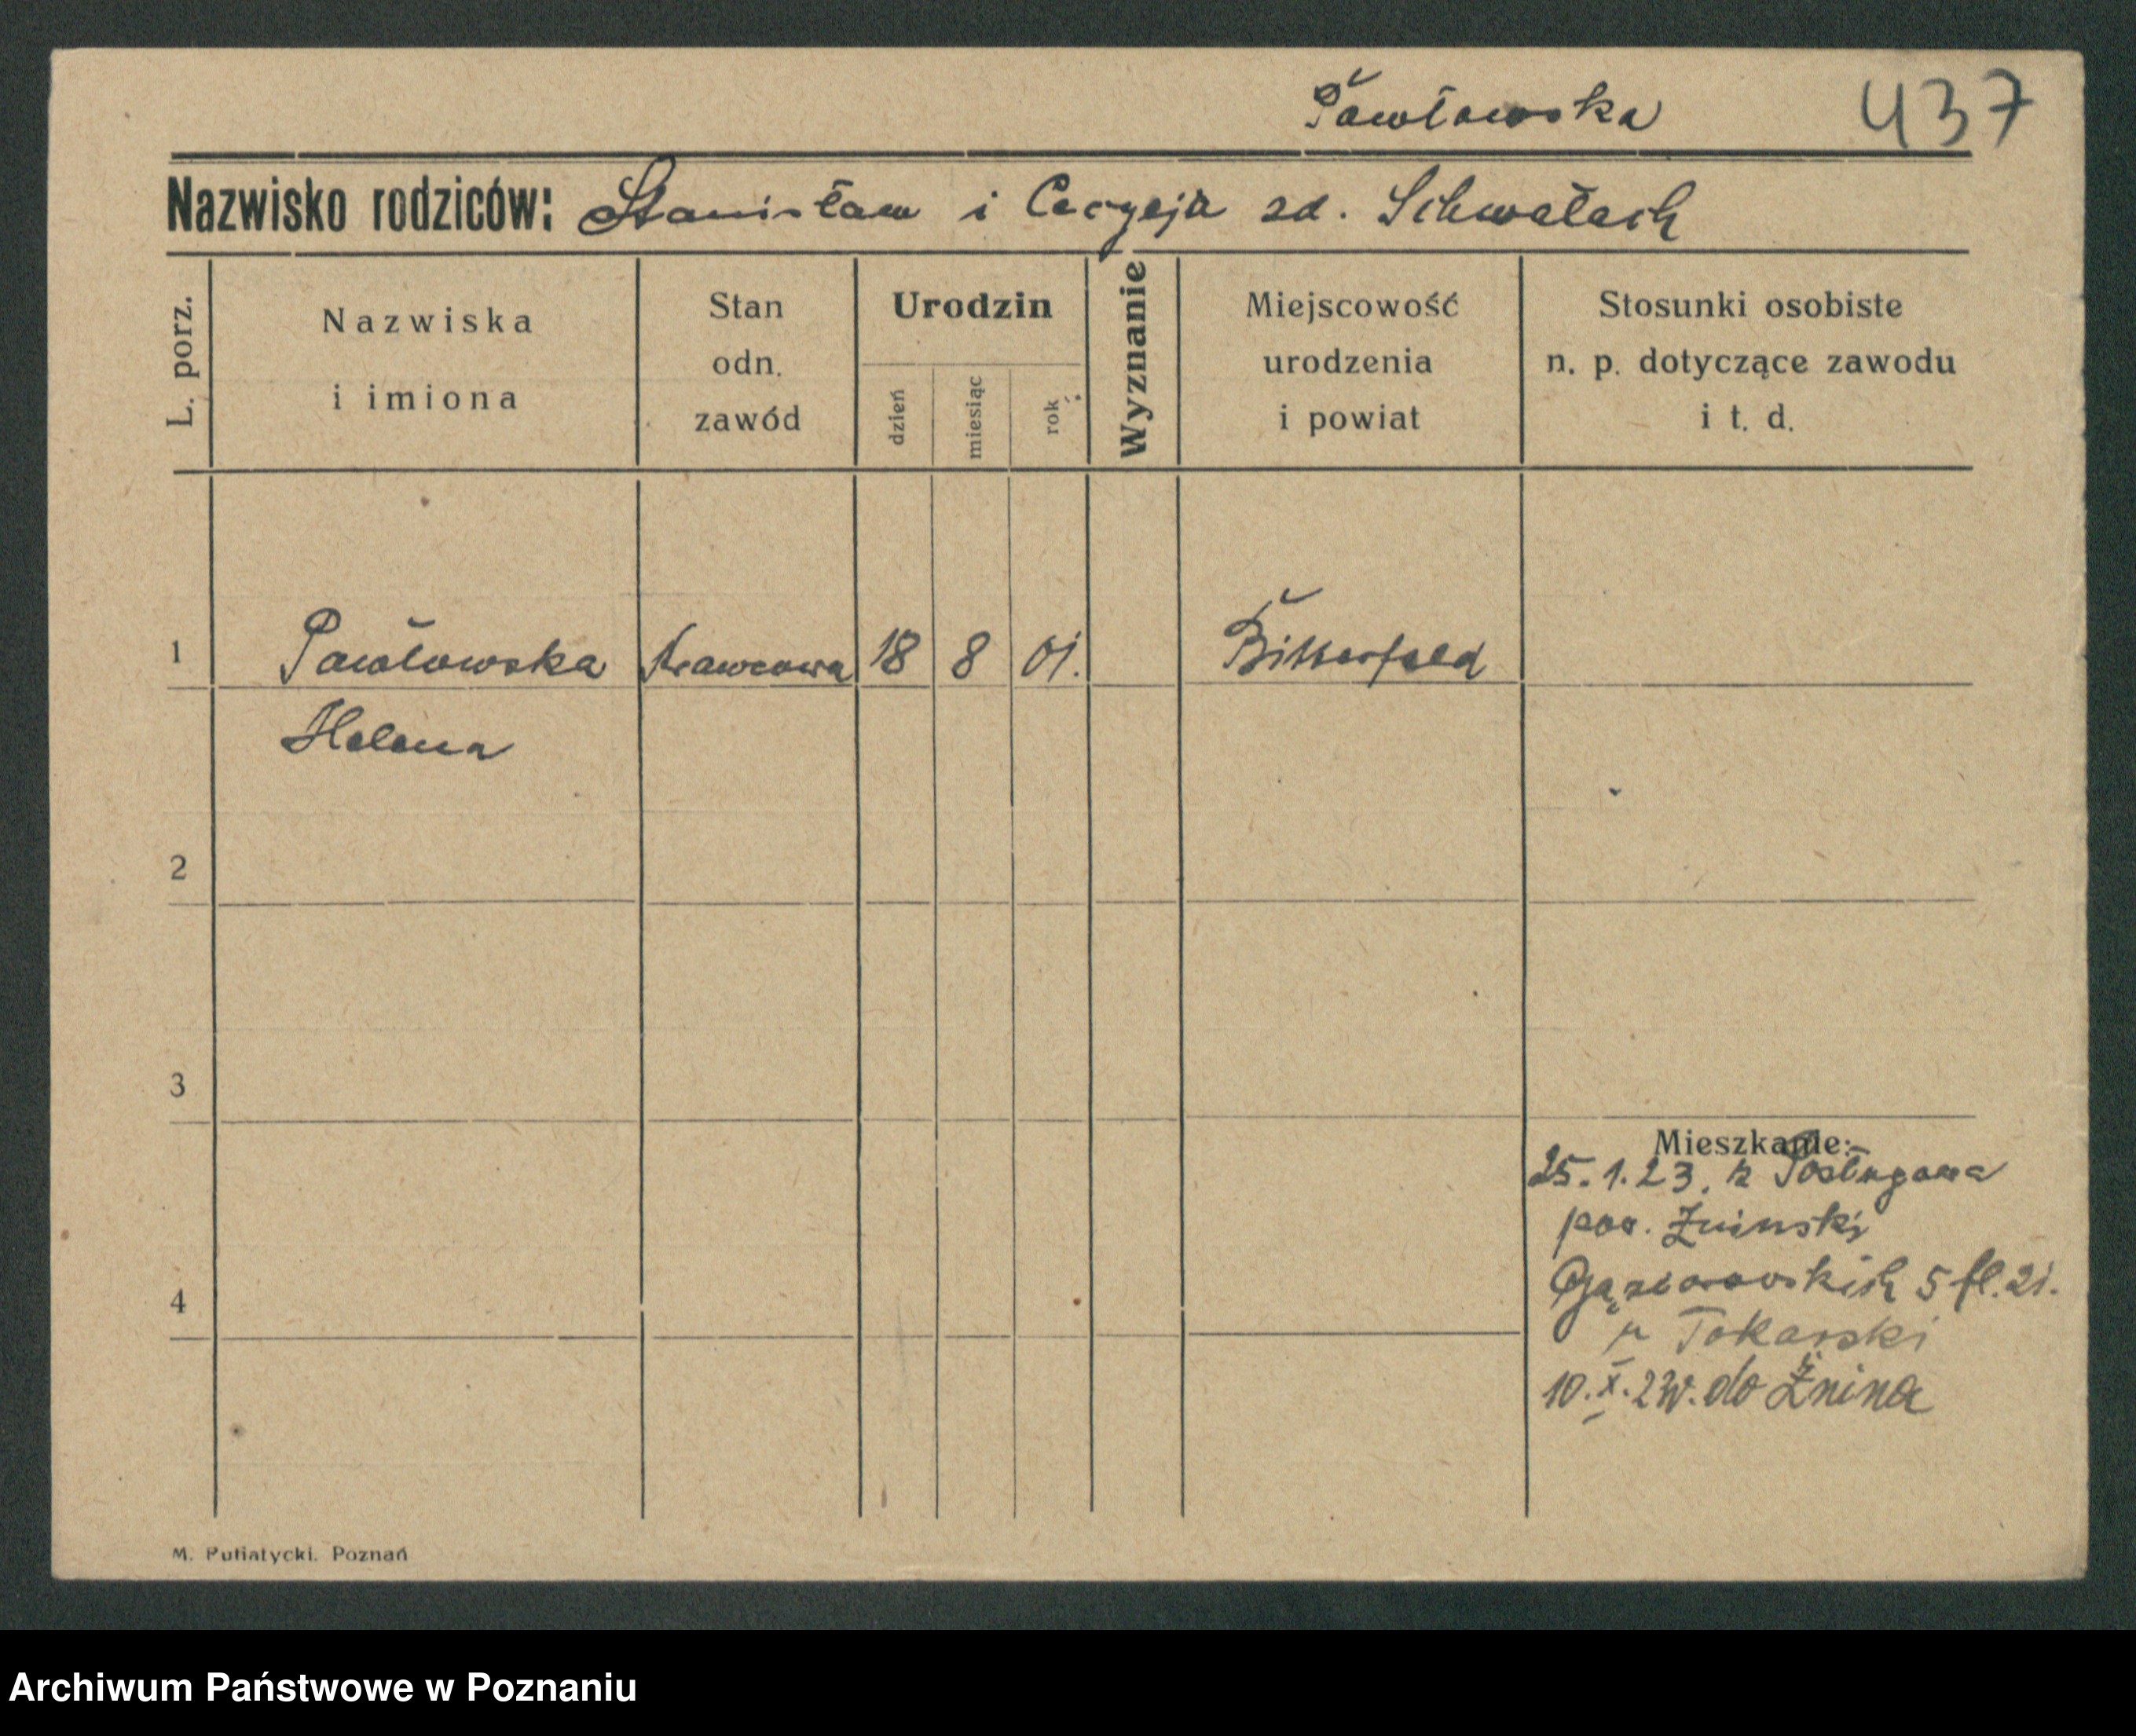 Pawłowska 437
Nazwisko rodziców: Stanisław i zd. Schwałach
L. porz.
Nazwiska
i imiona
Stan
odn.
zawód
Urodzin
dzień
miesiąc
rok
Wyznanie
Miejscowość
urodzenia
i powiat
Stosunki osobiste
n. p. dotyczące zawodu
i t. d.
1 Pawłowska Krawcowa 18 8 01. Bitterfeld
Helena
2
3
4
Mieszkanie:
25.1.23. z Posługowa
pow. Żninski
Gąsiorowskich 5 fl. 21.
u Tokarski
10.X. do Żnina
M. Putiatycki. Poznań
Archiwum Państwowe w Poznaniu